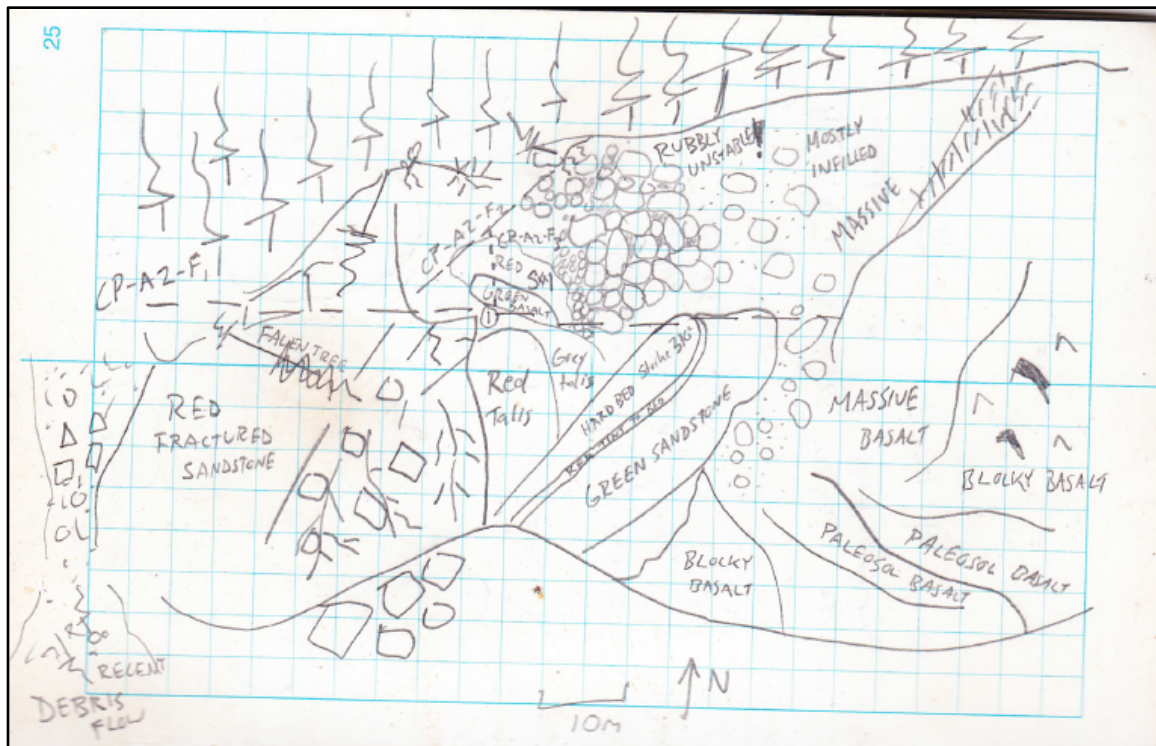 25
RUBBLY
UNSTABLE!
MOSTLY
INFILLED
MASSIVE
CP-A2-F1
CP-A2-F2
CP-A2-F3
RED SST
GREEN
BASALT
1
FALLEN TREE
RED
FRACTURED
SANDSTONE
Red
Talis
Grey
talis
HARD BED Strike 315°
RED TINT TO BED
GREEN SANDSTONE
MASSIVE
BASALT
BLOCKY BASALT
PALEOSOL BASALT
PALEOSOL BASALT
BLOCKY
BASALT
RECENT
DEBRIS
FLOW
N
10m